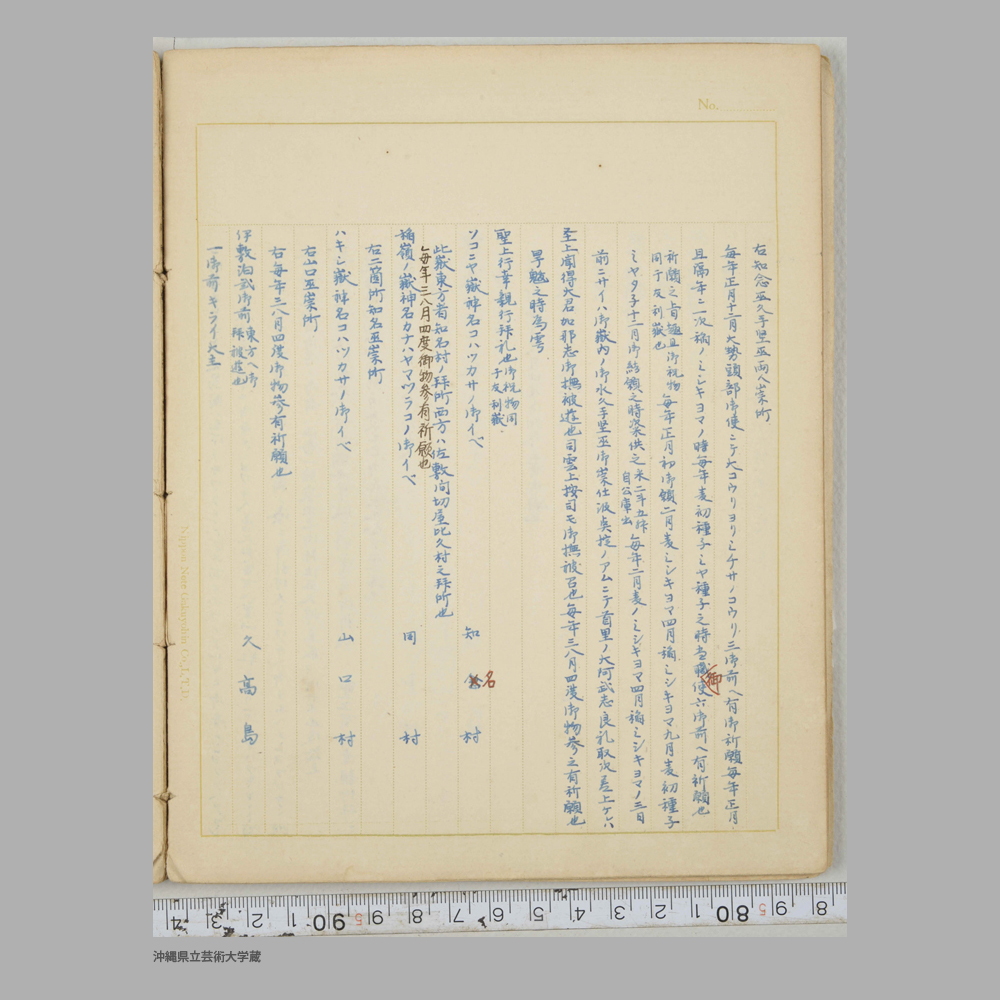 No.
右知念巫久手堅巫両人崇所
毎年正月十二月大勢頭部御使ニテ大コウリヨリミケサノコウリ三御前ヘ有御祈願毎年正月
且隔年ニ一次稲ノミシキヨマノ時毎年麦初種子ミヤ種子之時当職御使六御前ヘ有祈願也
祈願之旨趣且御祝物
同于友利嶽也
毎年正月初御鎖二月麦ミシキヨマ四月稲ミシキヨマ九月麦初種子
ミヤタ子十二月御結鎖之時崇供之
米二斗五舛
自公庫出
毎年二月麦ノミシキヨマ四月稲ミシキヨマノ三日
前ニサイハ御嶽内ノ御水久手堅巫御崇仕汲奥掟ノアムニテ首里ノ大阿武志良礼取次差上ケハ
至上聞得大君加那志御撫被遊也司雲上按司モ御撫被召也毎年三八月四度御物参之有祈願也
旱魃之時為雩
聖上行幸親行拝礼也
御祝物同
于友利嶽
ソコニヤ嶽神名コハツカサノ御イベ 知名村
此嶽東方者知名村ノ拝所西方ハ佐敷間切屋比久村之拝所也
毎年三八月四度御物参有祈願也
稲嶺ノ嶽神名カナハヤマツラコノ御イベ 同村
右二箇所知名巫崇所
ハキシ嶽神名コハツカサノ御イベ 山口村
右山口巫崇所
右毎年三八月四度御物参有祈願也
伊敷泊弐御前
東方ヘ御
拝被遊也
久高島
一御前キライ大主
Nippon Note Gakuyohin Co., L,T,D,
沖縄県立芸術大学蔵